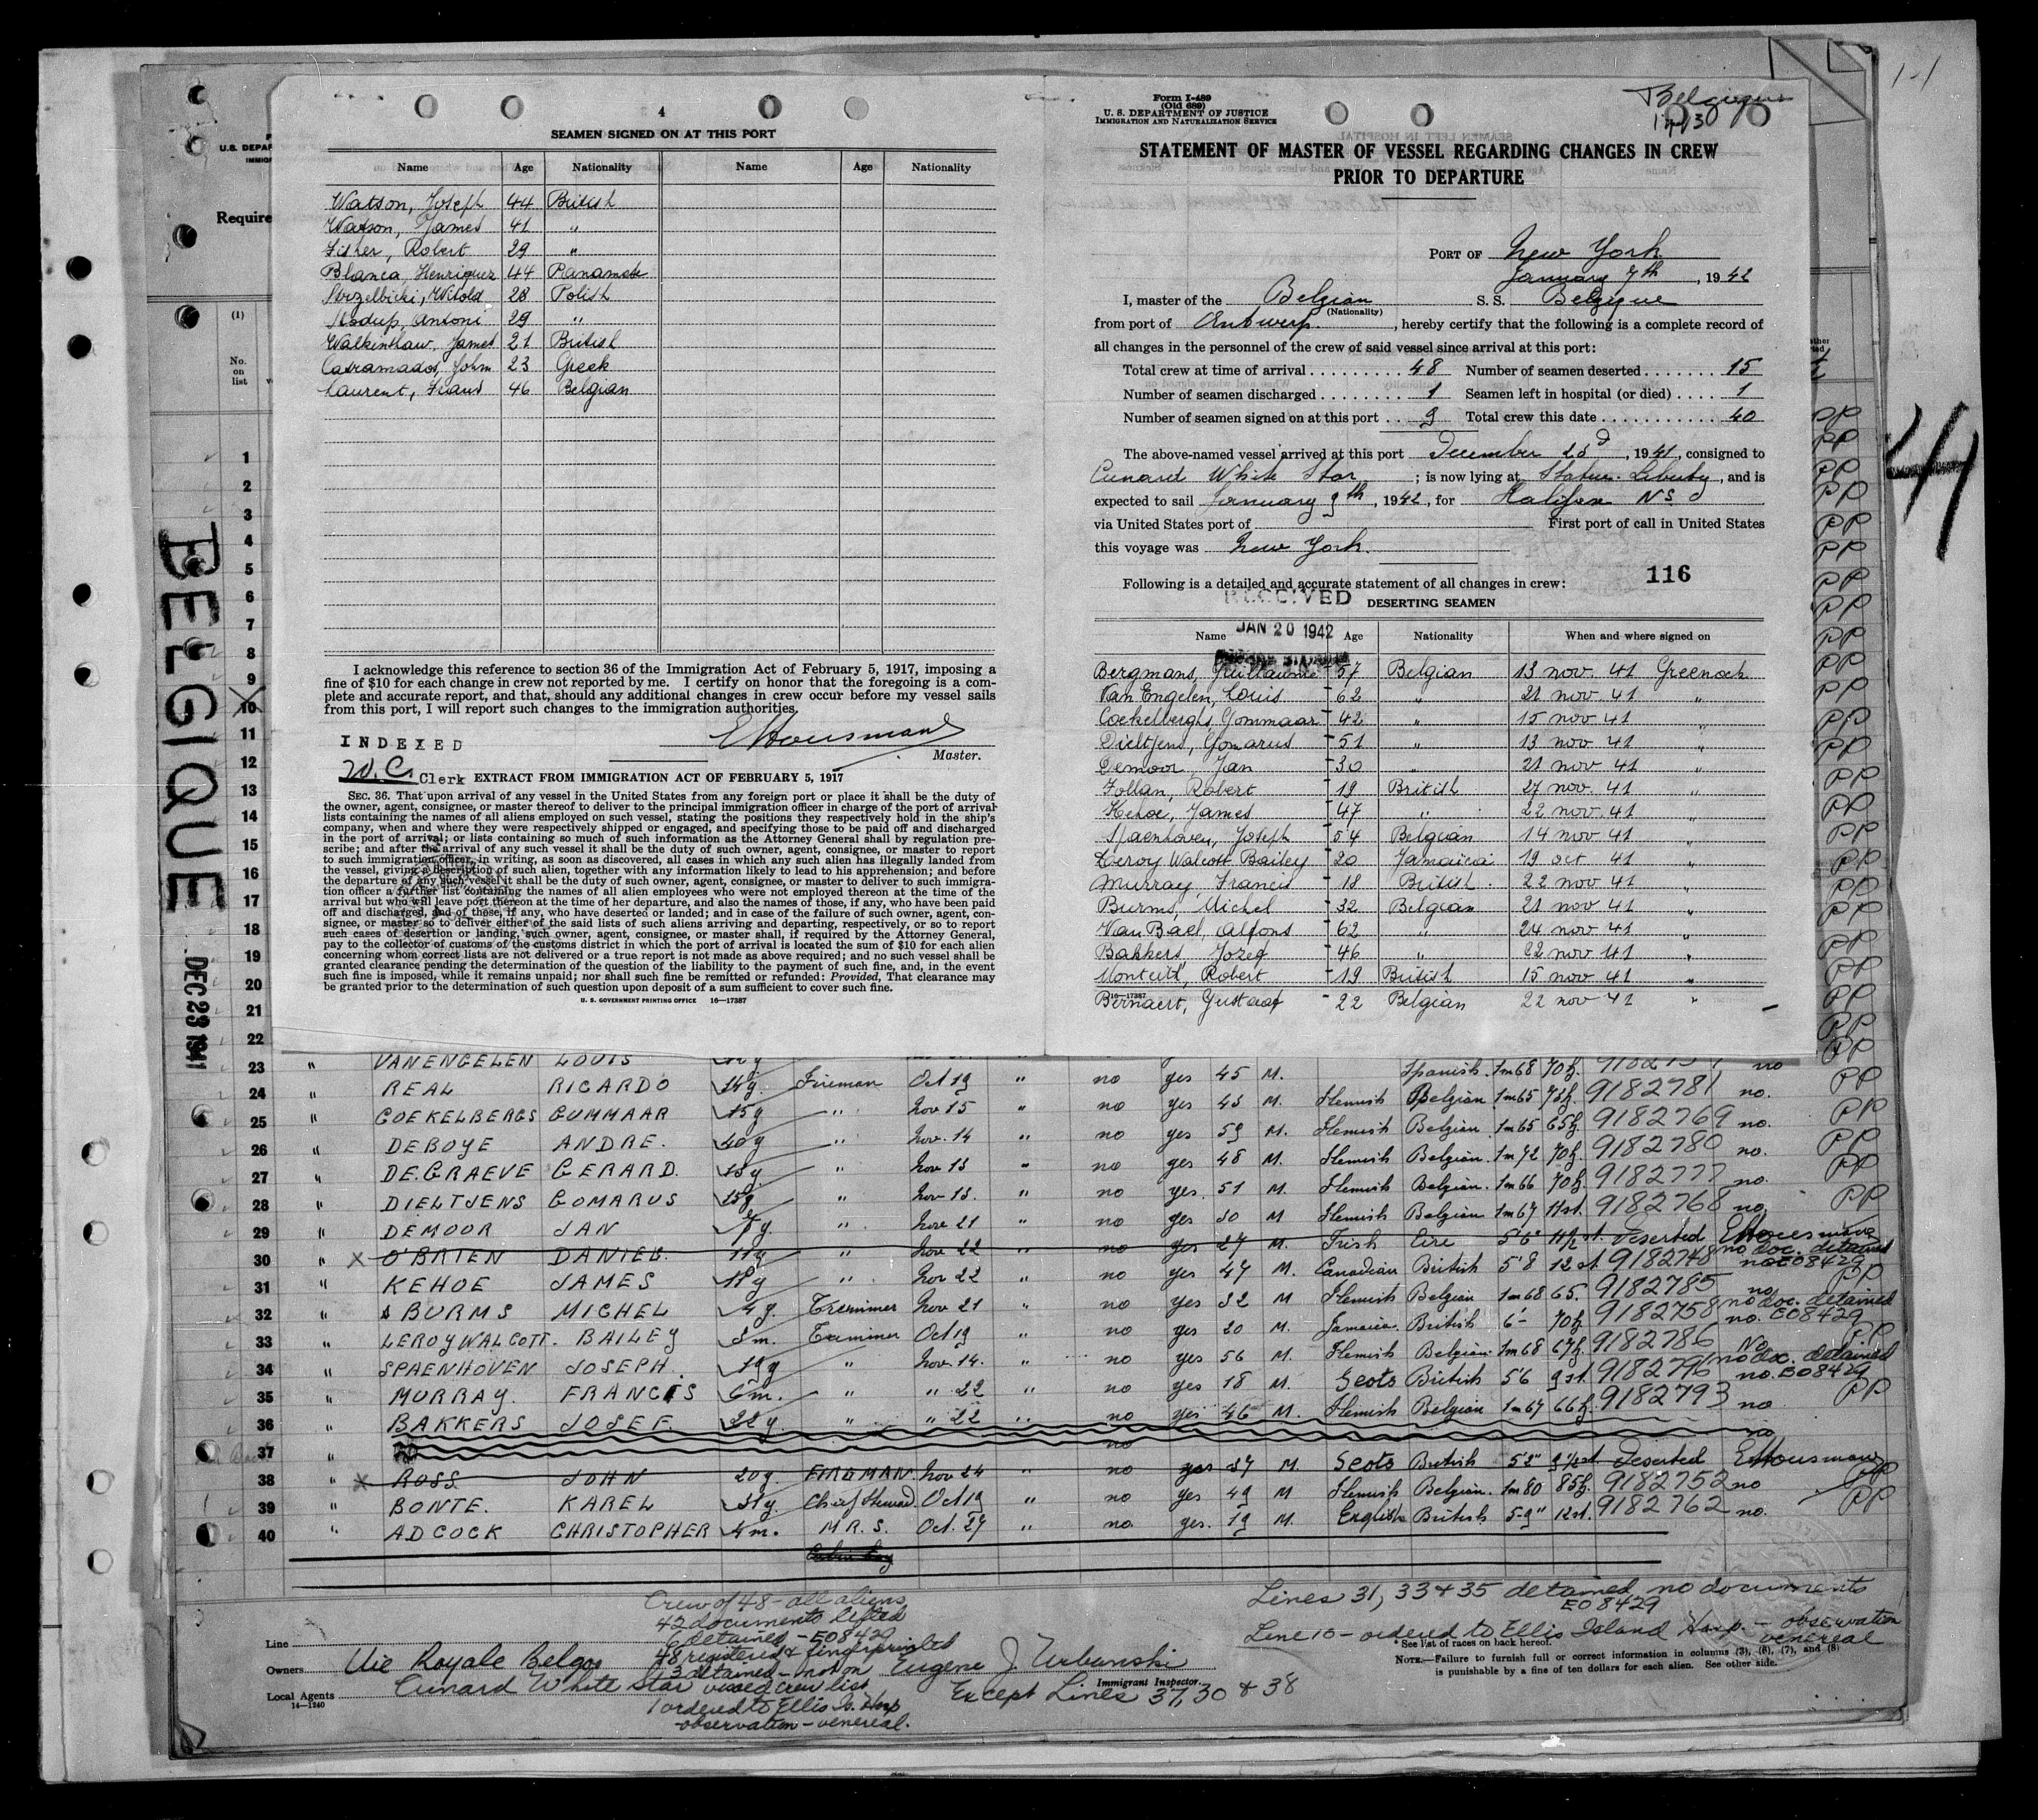 1-1
44
U.S. DEPAR
IMMIG
Require
(1)
No.
on
list
BELGIQUE
DEC 23 1941
4
SEAMEN SIGNED ON AT THIS PORT
Name Age Nationality Name Age Nationality
Watson, Joseph 44 British
Watson, James 41 "
Fisher, Robert 29 "
Blanca, Henriquez 44 Panamese
Strzelbicki, Witold 28 Polish
Skodup, Antoni 29 "
Walkinshaw, James 21 British
Catramados, John 23 Greek
Laurent, Frans 46 Belgian
I acknowledge this reference to section 36 of the Immigration Act of February 5, 1917, imposing a
fine of $10 for each change in crew not reported by me. I certify on honor that the foregoing is a com-
plete and accurate report, and that, should any additional changes in crew occur before my vessel sails
from this port, I will report such changes to the immigration authorities.
EHousman
Master.
INDEXED
W.C. Clerk
EXTRACT FROM IMMIGRATION ACT OF FEBRUARY 5, 1917
SEC. 36. That upon arrival of any vessel in the United States from any foreign port or place it shall be the duty of
the owner, agent, consignee, or master thereof to deliver to the principal immigration officer in charge of the port of arrival
lists containing the names of all aliens employed on such vessel, stating the positions they respectively hold in the ship's
company, when and where they were respectively shipped or engaged, and specifying those to be paid off and discharged
in the port of arrival; or lists containing so much of such information as the Attorney General shall by regulation pre-
scribe; and after the arrival of any such vessel it shall be the duty of such owner, agent, consignee, or master to report
to such immigration officer, in writing, as soon as discovered, all cases in which any such alien has illegally landed from
the vessel, giving a description of such alien, together with any information likely to lead to his apprehension; and before
the departure of any such vessel it shall be the duty of such owner, agent, consignee, or master to deliver to such immigra-
tion officer a further list containing the names of all alien employees who were not employed thereon at the time of the
arrival but who will leave port thereon at the time of her departure, and also the names of those, if any, who have been paid
off and discharged, and of those, if any, who have deserted or landed; and in case of the failure of such owner, agent, con-
signee, or master so to deliver either of the said lists of such aliens arriving and departing, respectively, or so to report
such cases of desertion or landing, such owner, agent, consignee, or master shall, if required by the Attorney General,
pay to the collector of customs of the customs district in which the port of arrival is located the sum of $10 for each alien
concerning whom correct lists are not delivered or a true report is not made as above required; and no such vessel shall be
granted clearance pending the determination of the question of the liability to the payment of such fine, and, in the event
such fine is imposed, while it remains unpaid; nor shall such fine be remitted or refunded: Provided, That clearance may
be granted prior to the determination of such question upon deposit of a sum sufficient to cover such fine.
U. S. GOVERNMENT PRINTING OFFICE 16—17387
Form I-489
(Old 689)
U. S. DEPARTMENT OF JUSTICE
IMMIGRATION AND NATURALIZATION SERVICE
Belgique
STATEMENT OF MASTER OF VESSEL REGARDING CHANGES IN CREW
PRIOR TO DEPARTURE
PORT OF New York
January 7th, 1942
I, master of the Belgian S. S. Belgique
(Nationality)
from port of Antwerp, hereby certify that the following is a complete record of
all changes in the personnel of the crew of said vessel since arrival at this port:
Total crew at time of arrival 48 Number of seamen deserted 15
Number of seamen discharged 1 Seamen left in hospital (or died) 1
Number of seamen signed on at this port 9 Total crew this date 40
The above-named vessel arrived at this port December 23d, 1941, consigned to
Cunard White Star; is now lying at Statue Liberty, and is
expected to sail January 9th, 1942, for Halifax NS
via United States port of First port of call in United States
this voyage was New York.
116
Following is a detailed and accurate statement of all changes in crew:
RECEIVED
DESERTING SEAMEN
JAN 20 1942
Name Age Nationality When and where signed on
Bergmans, Guillaume 57 Belgian 13 nov 41 Greenock
Van Engelen, Louis 62 " 21 nov 41 "
Coekelberghs Gommaar 42 " 15 nov 41 "
Dieltjens, Gomarus 51 " 13 nov 41 "
Demoor Jan 30 " 21 nov 41 "
Follan, Robert 19 British 27 nov. 41 "
Kehoe, James 47 " 22 nov 41 "
Spaenhoven, Joseph 54 Belgian 14 nov 41 "
Leroy Walcott Bailey 20 Jamaica 19 oct 41 "
Murray, Francis 18 British 22 nov 41 "
Burms, Michel 32 Belgian 21 nov 41 "
Van Bael, Alfons 62 " 24 nov 41 "
Bakkers, Jozef 46 " 22 nov 41 "
Monteith, Robert 19 British 15 nov 41 "
16—17387
Bernaert, Gustaaf 22 Belgian 22 nov 41 "
1
2
3
4
5
6
7
8
9
10
11
12
13
14
15
16
17
18
19
20
21
22
23 " VAN ENGELEN LOUIS
24 " REAL RICARDO 14y. Fireman Oct 19 " no yes 45 M. Spanish 1m68 70k. no
25 " COEKELBERGS GUMMAAR 15y " Nov 15 " no yes 43 M. Flemish Belgian 1m65 73k. 9182781 no. PP
26 " DEBOYE ANDRE. 40y " Nov. 14 " no yes 59 M. Flemish Belgian. 1m65 65k. 9182769 no. PP
27 " DE.GRAEVE GERARD. 18y " Nov 13 " no yes 48 M. Flemish Belgian. 1m72 70k. 9182780 no. PP
28 " DIELTJENS GOMARUS 25y " Nov 13. " no yes. 51 M. Flemish Belgian. 1m66 70k. 9182777 no. PP
29 " DEMOOR JAN 7y. " Nov 21 " no yes 30 M Flemish Belgian 1m67 11st. 9182768 no. PP
30 " X O'BRIEN DANIEL. 11y " Nov 22 " no yes 27 M. Irish Eire 5'6" 11½ st. Deserted EHousman
31 " KEHOE JAMES 18y " Nov 22 " no yes 47 M. Canadian British 5'8 12 st. 9182748 no doc. detained no E08429
32 " BURMS MICHEL 4y. Tremmer Nov 21 " no yes 32 M Flemish Belgian 1m68 65. 9182785 no PP
33 " LEROY WALCOTT. BAILEY 3m. Trimmer Oct 19 " no yes 20 M. Jamaica. British 6'- 70k 9182758 no doc. detained no. E08429
34 " SPAENHOVEN JOSEPH. 19y " Nov. 14. " no yes 56 M. Flemish Belgian. 1m68 67k. 9182786 No PP
35 " MURRAY. FRANCIS 6m. " " 22 " no yes 18 M. Scots British 5'6 9 st. 9182796 no doc. detained no. E08429
36 " BAKKERS JOSEF. 22y. " " 22 " no yes 46 M. Flemish Belgian 1m67 66k. 9182793 no PP
37 " no no
38 " X ROSS JOHN 20y. FIREMAN. Nov 24 " no yes 37 M. Scots British 5'2" 9½st Deserted EHousman
39 " BONTE. KAREL 31y Chief Steward. Oct 19 " no yes 49 M Flemish Belgian. 1m80 85k. 9182752 no PP
40 " ADCOCK CHRISTOPHER 4m. M R. S. Oct. 27 " no. yes. 19 M. English British 5-9" 12st. 9182762 no. PP
Crew of 48 - all aliens
42 documents lifted
detained - E08429
48 registered & fingerprinted
3 detained - not on
visaed crew list
1 ordered to Ellis Is. Hosp
- observation - venereal.
Lines 31, 33 & 35 detained no documents
E0 8429
Line 10 - ordered to Ellis Island Hosp. - observation
venereal
Line
Owners Cie Royale Belgo
Local Agents Cunard White Star
14—1240
Eugene J. Urbanski
Immigrant Inspector.
Except Lines 37, 30 & 38
* See list of races on back hereof.
NOTE.—Failure to furnish full or correct information in columns (3), (6), (7), and (8)
is punishable by a fine of ten dollars for each alien. See other side.